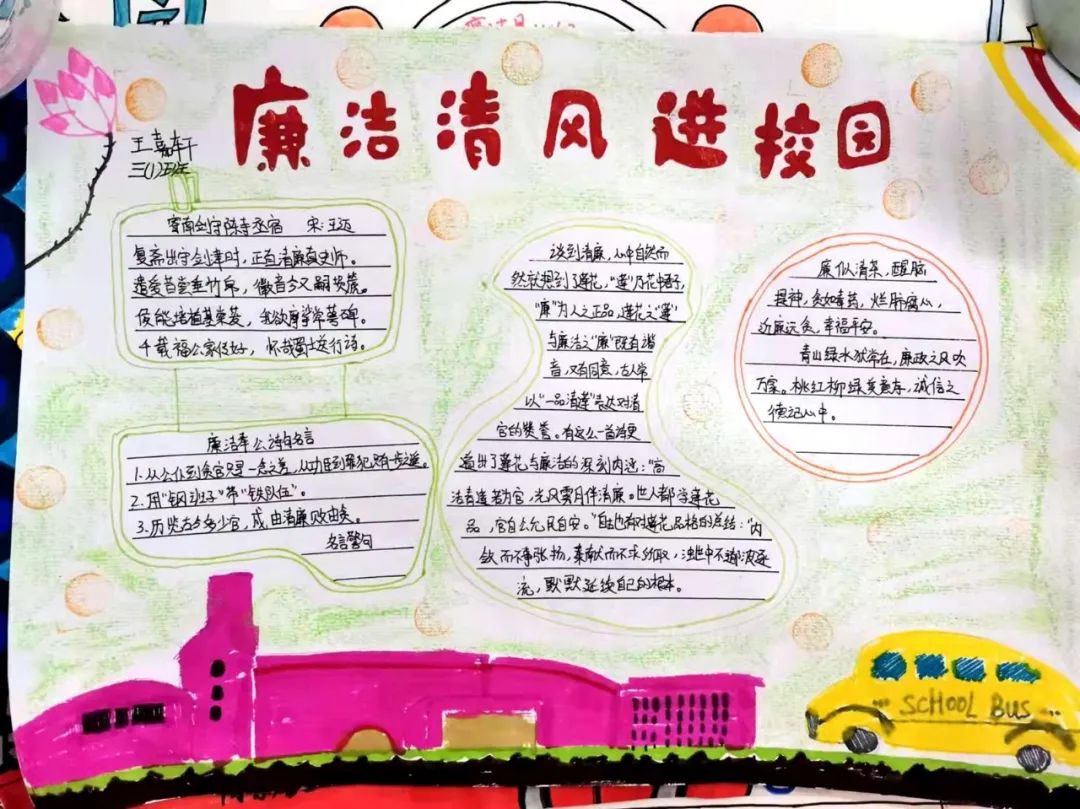 廉洁清风进校园
王嘉轩
三(1)班
宋:王迈
复斋出守剑津时,正直清廉真吏师。
遗爱苔尝垂竹帛,徽音今又嗣埙篪。
我欲摩挲常著碑。
千载福公家传好,
廉洁奉公诗句名言
1.从公仆到贪官只是一念之差,从功臣到罪犯只有一步之遥。
2.用"钢班子"带"铁队伍"。
3.历览古今多少官,成由清廉败由贪。
名言警句
谈到清廉,心中自然而
然就想到了莲花,"莲"乃花中君子,
"廉"为人之正品,莲花之"莲"
与廉洁之"廉"既有谐
音,又有同意,古人常
以"一品清莲"表达对清
官的赞誉。有这么一首诗更
道出了莲花与廉洁的深刻内涵:"高
洁青莲若为官,光风霁月伴清廉。世人都学莲花
品,官自公允民自安。"自古也有对莲花品格的总结:"内
敛而不事张扬,奉献而不求索取,浊世中不随波逐
流,默默延续自己的根本。
廉似清茶,醒脑
提神,贪如毒药,烂肺腐心,
近廉远贪,幸福平安。
青山绿水犹常在,廉政之风吹
万家。桃红柳绿笑意存,诚信之
德记心中。
SCHOOL BUS